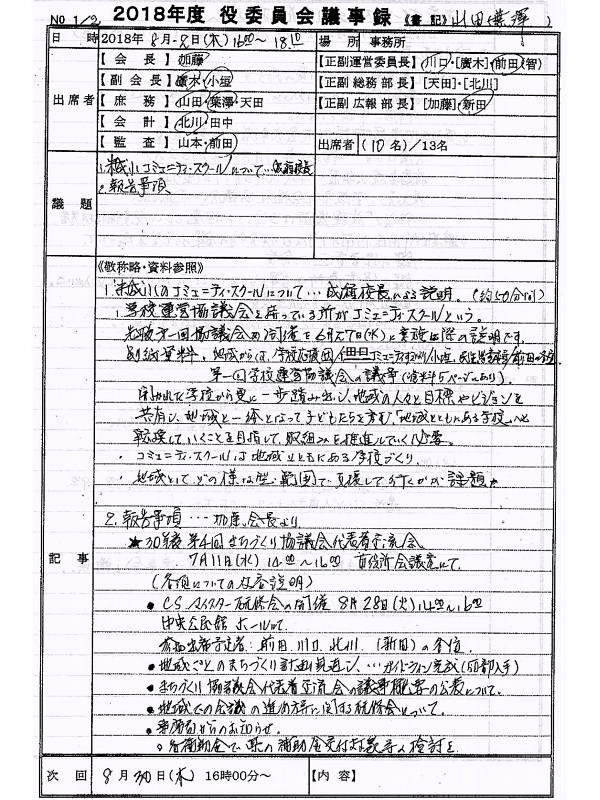 NO 1/2 2018年度 役委員会議事録 《書記》山田(葉澤)
日時 2018年8月-8日(水)16:00~18:10 場所 事務所
出席者
【会長】加藤 【正副運営委員長】川口・[廣木]・前田(智)
【副会長】廣木・小垣 【正副総務部長】[天田]・[北川]
【庶務】山田・葉澤・天田 【正副広報部長】[加藤]・新田
【会計】北川・田中
【監査】山本・前田 出席者 (10名)/13名
議題
コミュニティ・スクールについて
2.報告事項
《敬称略・資料参照》
記事
1. コミュニティ・スクールについて…成 校長による説明。(約50分間)
・学校運営協議会を持っている所がコミュニティ・スクールという。
第一回協議会の開催を6月27日(水)に実施 の説明です。
別紙資料。地域からは、学校応援団
第一回学校運営協議会の議事(資料5ページにあり)。
開かれた学校から更に一歩踏み出し、地域の人々と目標やビジョンを
共有し、地域と一体となって子どもたちを育む、「地域とともにある学校」へと
転換していくことを目指して、取組みを推進していく必要。
・コミュニティ・スクールは地域とともにある学校づくり。
・地域としてどの様な型・範囲で支援して行くかが課題
2. 報告事項…加藤会長より
★30年度第4回まちづくり協議会代表者交流会
7月11日(水)14:00~16:00 市役所会議室にて
(各項についての内容説明)
●CSマイスター研修会の開催 8月28日(火)14:00~16:00
中央公民館ホールにて
参加出席予定者:前田、川口、北川、(新田)の各位
●地域ごとのまちづくり計画見直し、…ガイドライン完成(50部入手)
●まちづくり協議会代表者交流会の議事概要の公表について。
●地域での会議の進め方等に関する研修会について。
●事務局からのお知らせ。
次回 8月30日(木) 16時00分~ 【内容】